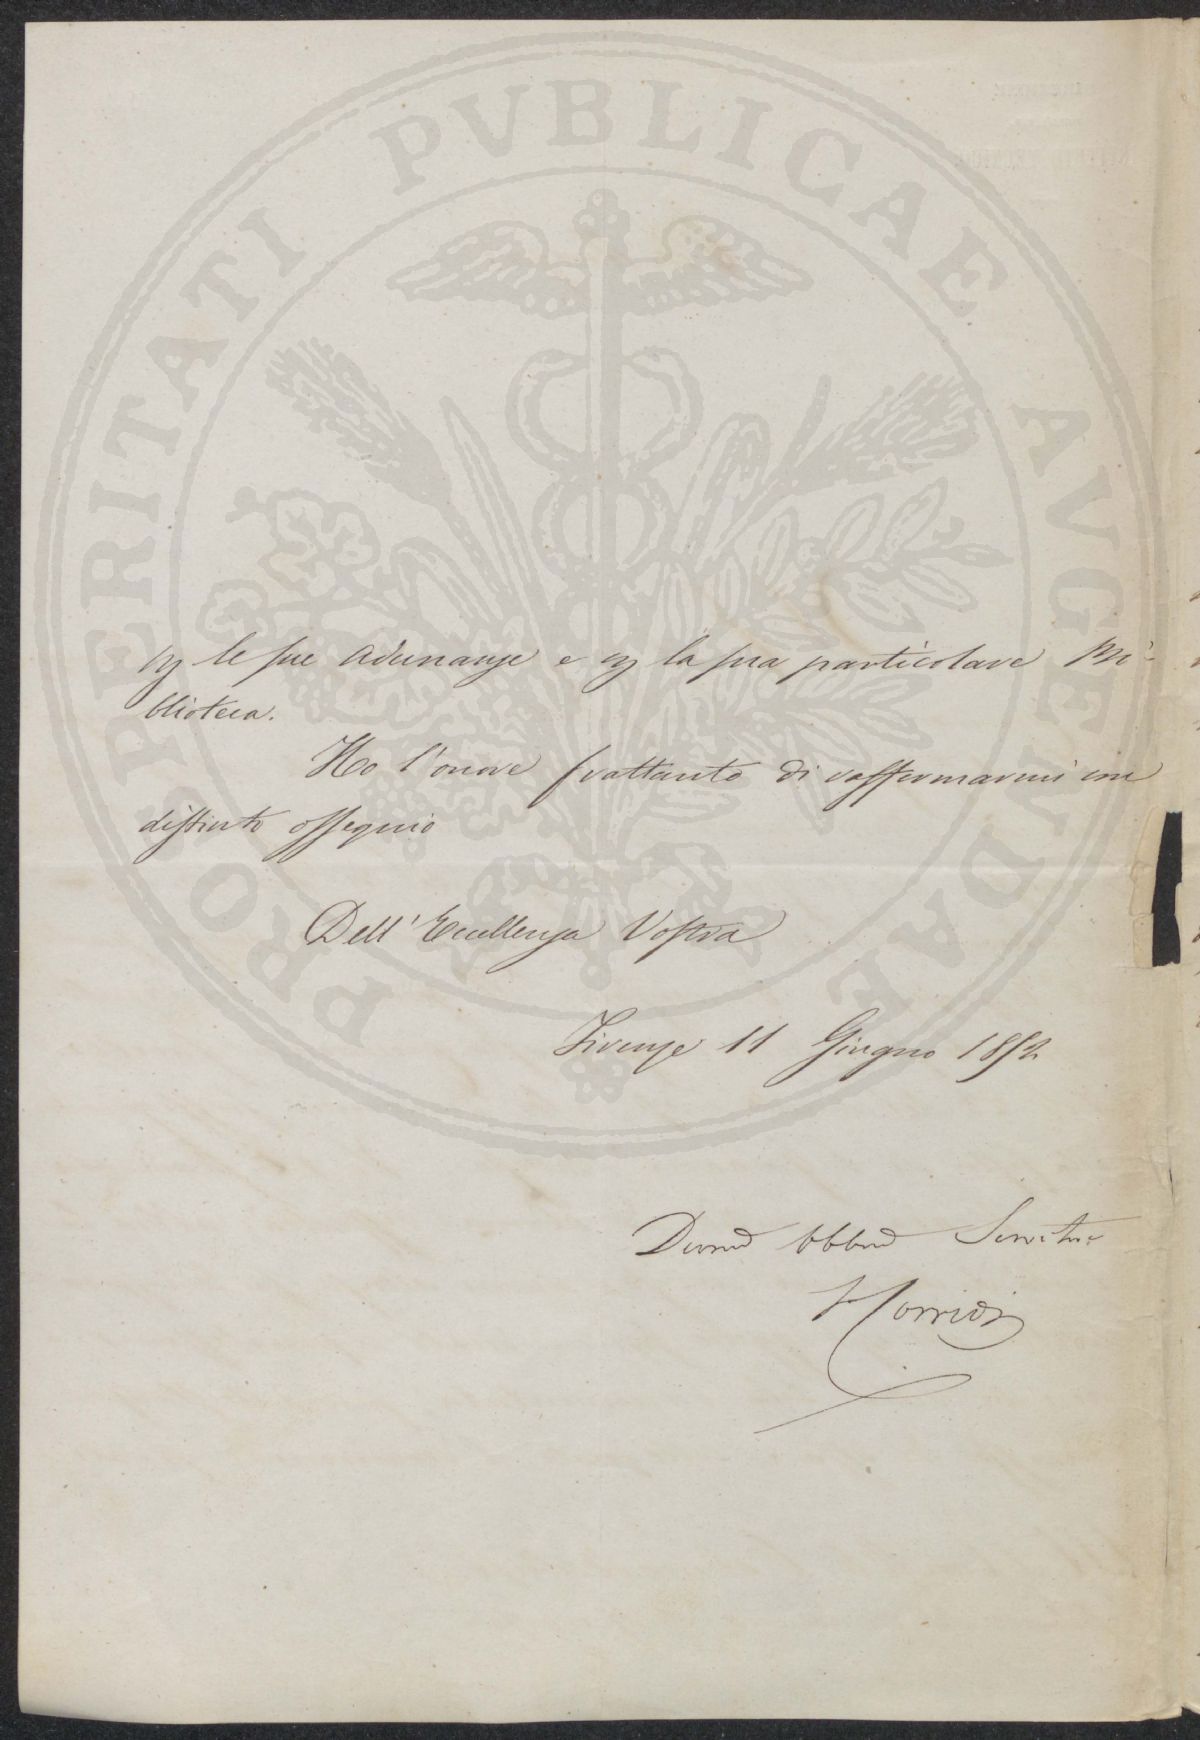 PROSPERITATI PUBLICAE AUGENDAE
le sue adunanze e la sua particolare Bi-
blioteca.
Ho l'onore frattanto di raffermarmi con
distinto ossequio
Dell'Eccellenza Vostra
Firenze 11 Giugno 1852
Devmo Obbmo Servitore